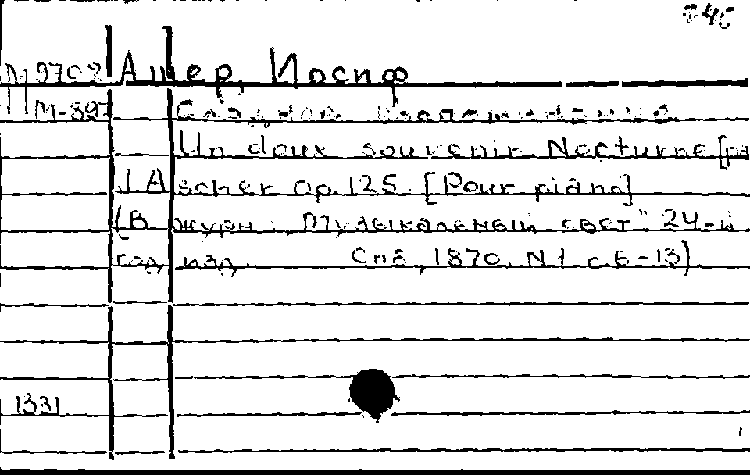 М 9702 Ашер, Иосиф
М-897 Сладкое воспоминание
Un doux souvenir Nocturne [pa
J A scher op. 125. [Pour piano]
(В журн: Музыкальный свет" 24-й
год изд. Спб, 1870, N 1 с. 6-13)
1331